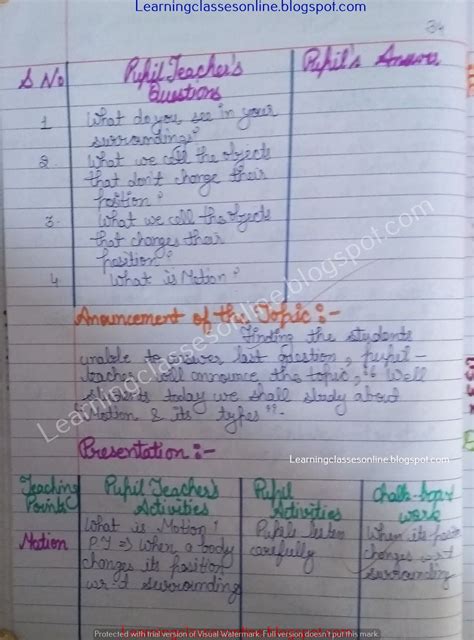 Learningclassesonline.blogspot.com
34
S No Pupil Teacher's Questions Pupil's Answer
1 What do you see in your
surroundings?
2. What we call the objects
that don't change their
position?
3. What we call the objects
that changes their
position?
4 What is Motion?
Anouncement of the Topic :-
Finding the students
unable to answer last question, pupil-
teacher will announce the topic, "Well
students today we shall study about
Motion & its types".
Learningclassesonline.blogspot.com
Presentation :-
Learningclassesonline.blogspot.com
Teaching Points Pupil Teacher's Activities Pupil Activities Chalk-board work
Motion
What is Motion?
PT => When a body
changes its position
w.r.t surrounding
Pupils listen
carefully
When its position
changes w.r.t
surrounding
Protected with trial version of Visual Watermark. Full version doesn't put this mark.